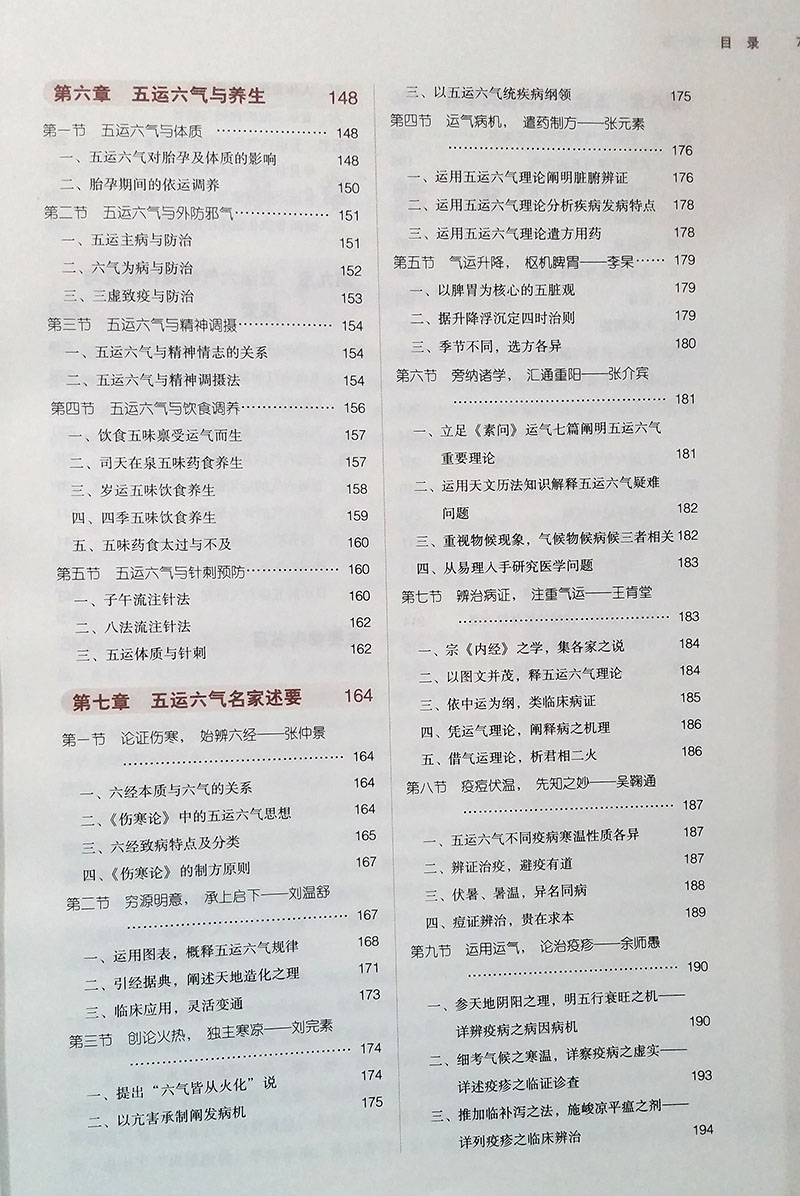 目 录
7
第六章 五运六气与养生 148
第一节 五运六气与体质 ………………… 148
一、五运六气对胎孕及体质的影响 148
二、胎孕期间的依运调养 150
第二节 五运六气与外防邪气……………… 151
一、五运主病与防治 151
二、六气为病与防治 152
三、三虚致疫与防治 153
第三节 五运六气与精神调摄……………… 154
一、五运六气与精神情志的关系 154
二、五运六气与精神调摄法 154
第四节 五运六气与饮食调养……………… 156
一、饮食五味禀受运气而生 157
二、司天在泉五味药食养生 157
三、岁运五味饮食养生 158
四、四季五味饮食养生 159
五、五味药食太过与不及 160
第五节 五运六气与针刺预防……………… 160
一、子午流注针法 160
二、八法流注针法 162
三、五运体质与针刺 162
第七章 五运六气名家述要 164
第一节 论证伤寒， 始辨六经——张仲景
……………………………………… 164
一、六经本质与六气的关系 164
二、《伤寒论》中的五运六气思想 164
三、六经致病特点及分类 165
四、《伤寒论》的制方原则 167
第二节 穷源明意， 承上启下——刘温舒
……………………………………… 167
一、运用图表，概释五运六气规律 168
二、引经据典，阐述天地造化之理 171
三、临床应用，灵活变通 173
第三节 创论火热， 独主寒凉——刘完素
……………………………………… 174
一、提出“六气皆从火化”说 174
二、以亢害承制阐发病机 175
三、以五运六气统疾病纲领 175
第四节 运气病机， 遣药制方——张元素
……………………………………… 176
一、运用五运六气理论阐明脏腑辨证 176
二、运用五运六气理论分析疾病发病特点 178
三、运用五运六气理论遣方用药 178
第五节 气运升降， 枢机脾胃——李杲…… 179
一、以脾胃为核心的五脏观 179
二、据升降浮沉定四时治则 179
三、季节不同，选方各异 180
第六节 旁纳诸学， 汇通重阳——张介宾
……………………………………… 181
一、立足《素问》运气七篇阐明五运六气
重要理论 181
二、运用天文历法知识解释五运六气疑难
问题 182
三、重视物候现象，气候物候病候三者相关 182
四、从易理人手研究医学问题 183
第七节 辨治病证， 注重气运——王肯堂
……………………………………… 183
一、宗《内经》之学，集各家之说 184
二、以图文并茂，释五运六气理论 184
三、依中运为纲，类临床病证 185
四、凭运气理论，阐释病之机理 186
五、借气运理论，析君相二火 186
第八节 疫痘伏温， 先知之妙——吴鞠通
……………………………………… 187
一、五运六气不同疫病寒温性质各异 187
二、辨证治疫，避疫有道 187
三、伏暑、暑温，异名同病 188
四、痘证辨治，贵在求本 189
第九节 运用运气， 论治疫疹——余师愚
……………………………………… 190
一、参天地阴阳之理，明五行衰旺之机——
详辨疫病之病因病机 190
二、细考气候之寒温，详察疫病之虚实——
详述疫疹之临证诊查 193
三、推加临补泻之法，施峻凉平瘟之剂——
详列疫疹之临床辨治 194